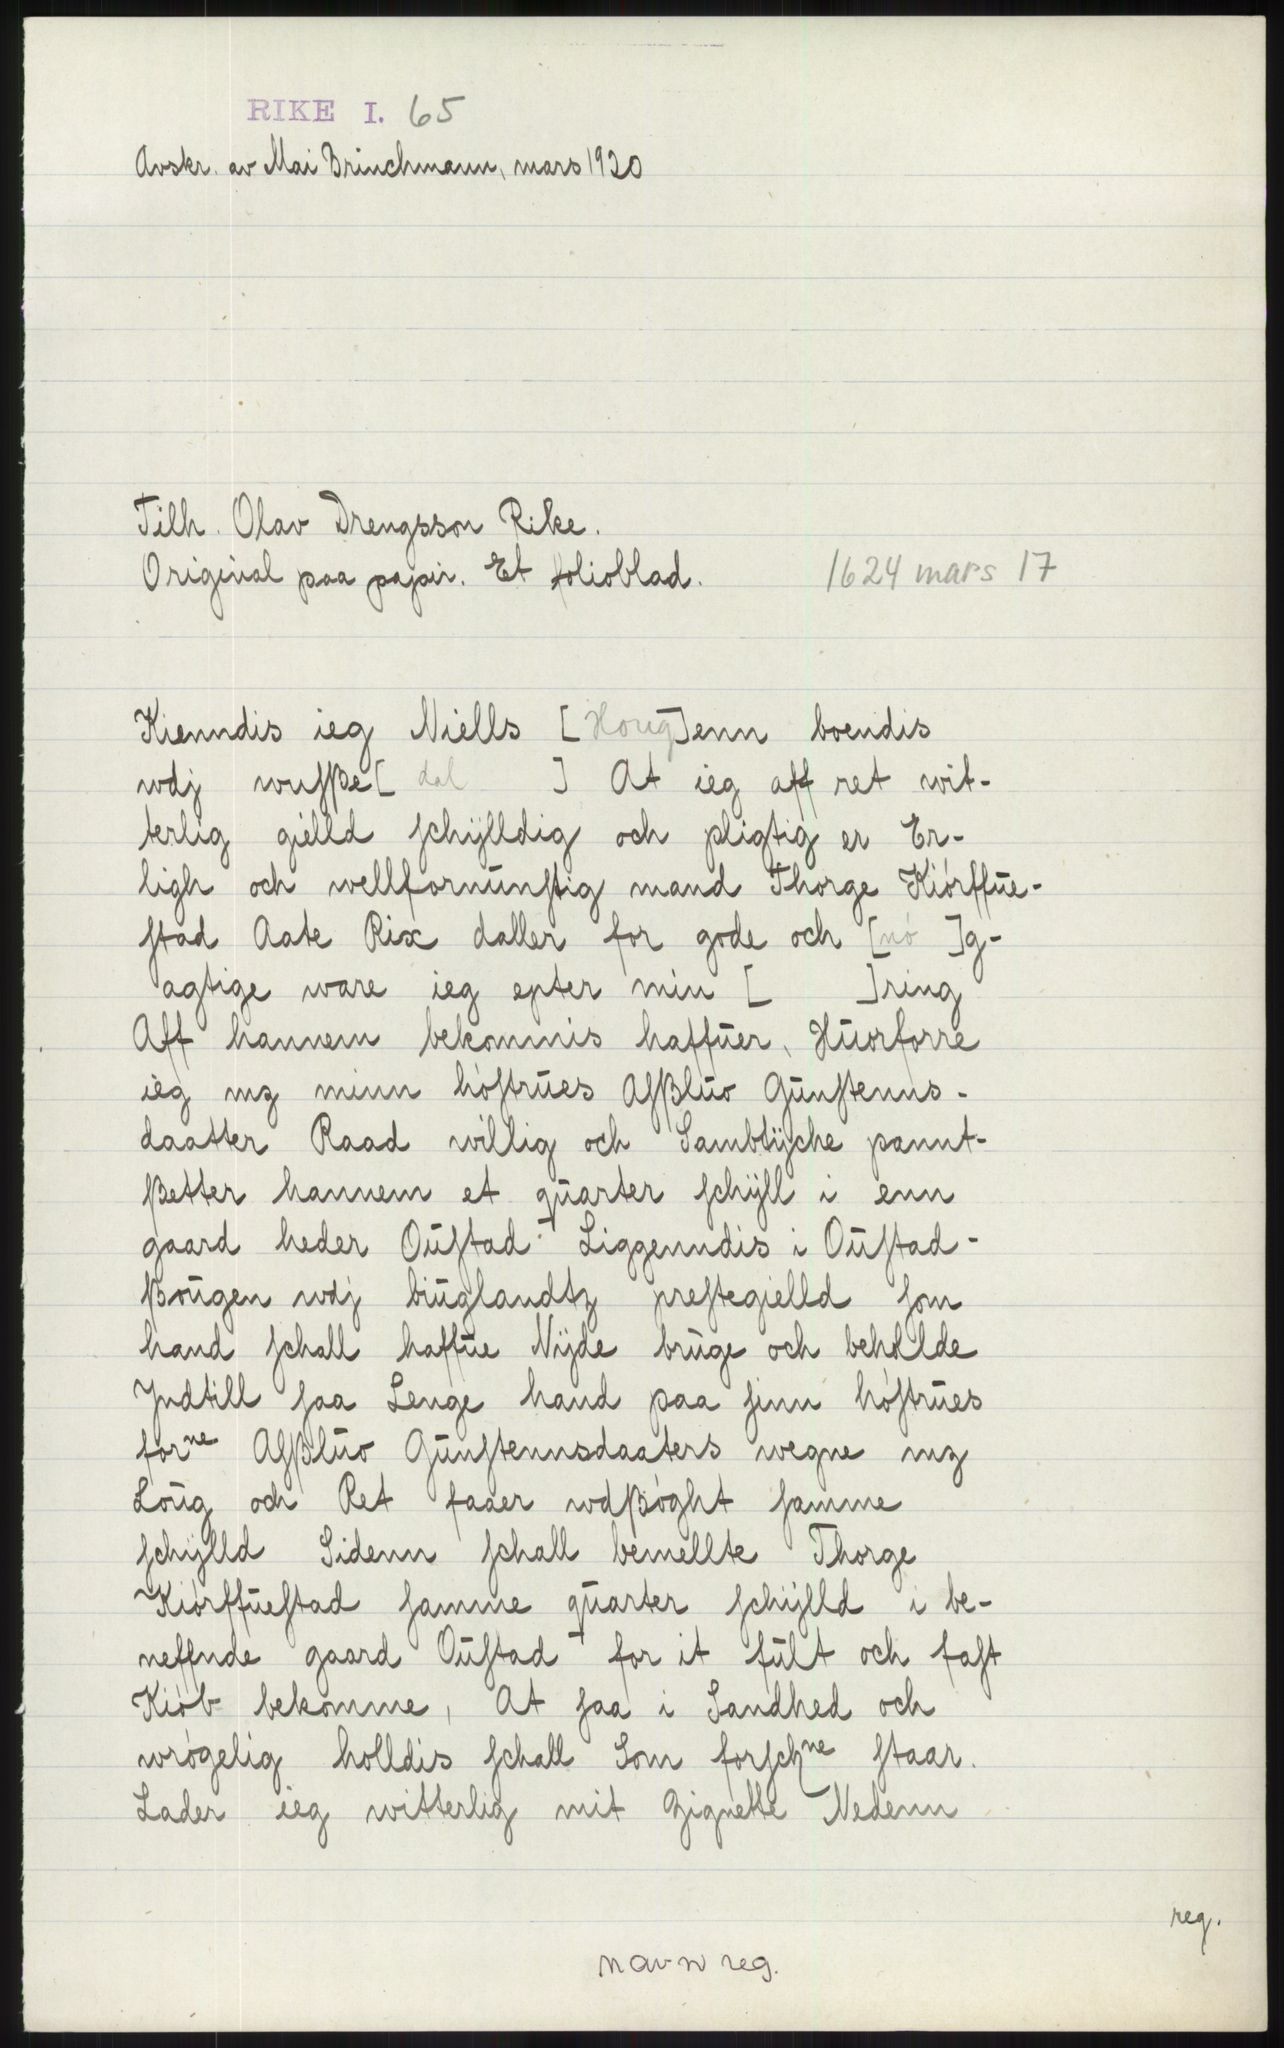 RIKE I. 65
Avskr. av Mai Brinchmann, mars 1920
Tilh. Olav Drengsson Rike.
Original paa papir. Et folioblad. 1624 mars 17
Kienndis ieg Niells [Houg]enn boendis
wdj wusße[dal ] At ieg aff ret wit-
terlig gielld schÿlldig och pligtig er Er-
ligh och wellfornūnstig mand Thorge Kiórffūe-
stad Aate Rix daller for gode och [nó ]g-
agtige ware ieg epter min [ ]ring
Aff hannem bekommis haffūer, Hūorforre
ieg mz minn hóstrūes Asßlūo Gūnstenns-
daatter Raad willig och Sambtÿcke pannt-
ßetter hannem et qūarter schÿll i enn
gaard heder Oūstad. Liggenndis i Oūstad-
ßoūgen wdj biūglandtz prestegielld som
hand schall haffūe Nÿde brūge och beholde
Jndtill saa Lenge hand paa sinn hóstrūes
forne Asßlūo Gūnstennsdaaters wegne mz
Loūg och Ret faaer wdßóght samme
schÿlld Sidenn schall bemellte Thorge
Kiórffūestad samme qūarter schÿlld i be-
neffnde gaard Oūstad for it fūlt och fast
Kiób bekomme, At saa i Sandhed och
wrógelig holldis schall Som forschne staar.
Lader ieg witterlig mit Zignette Nedenn
reg.
navn reg.